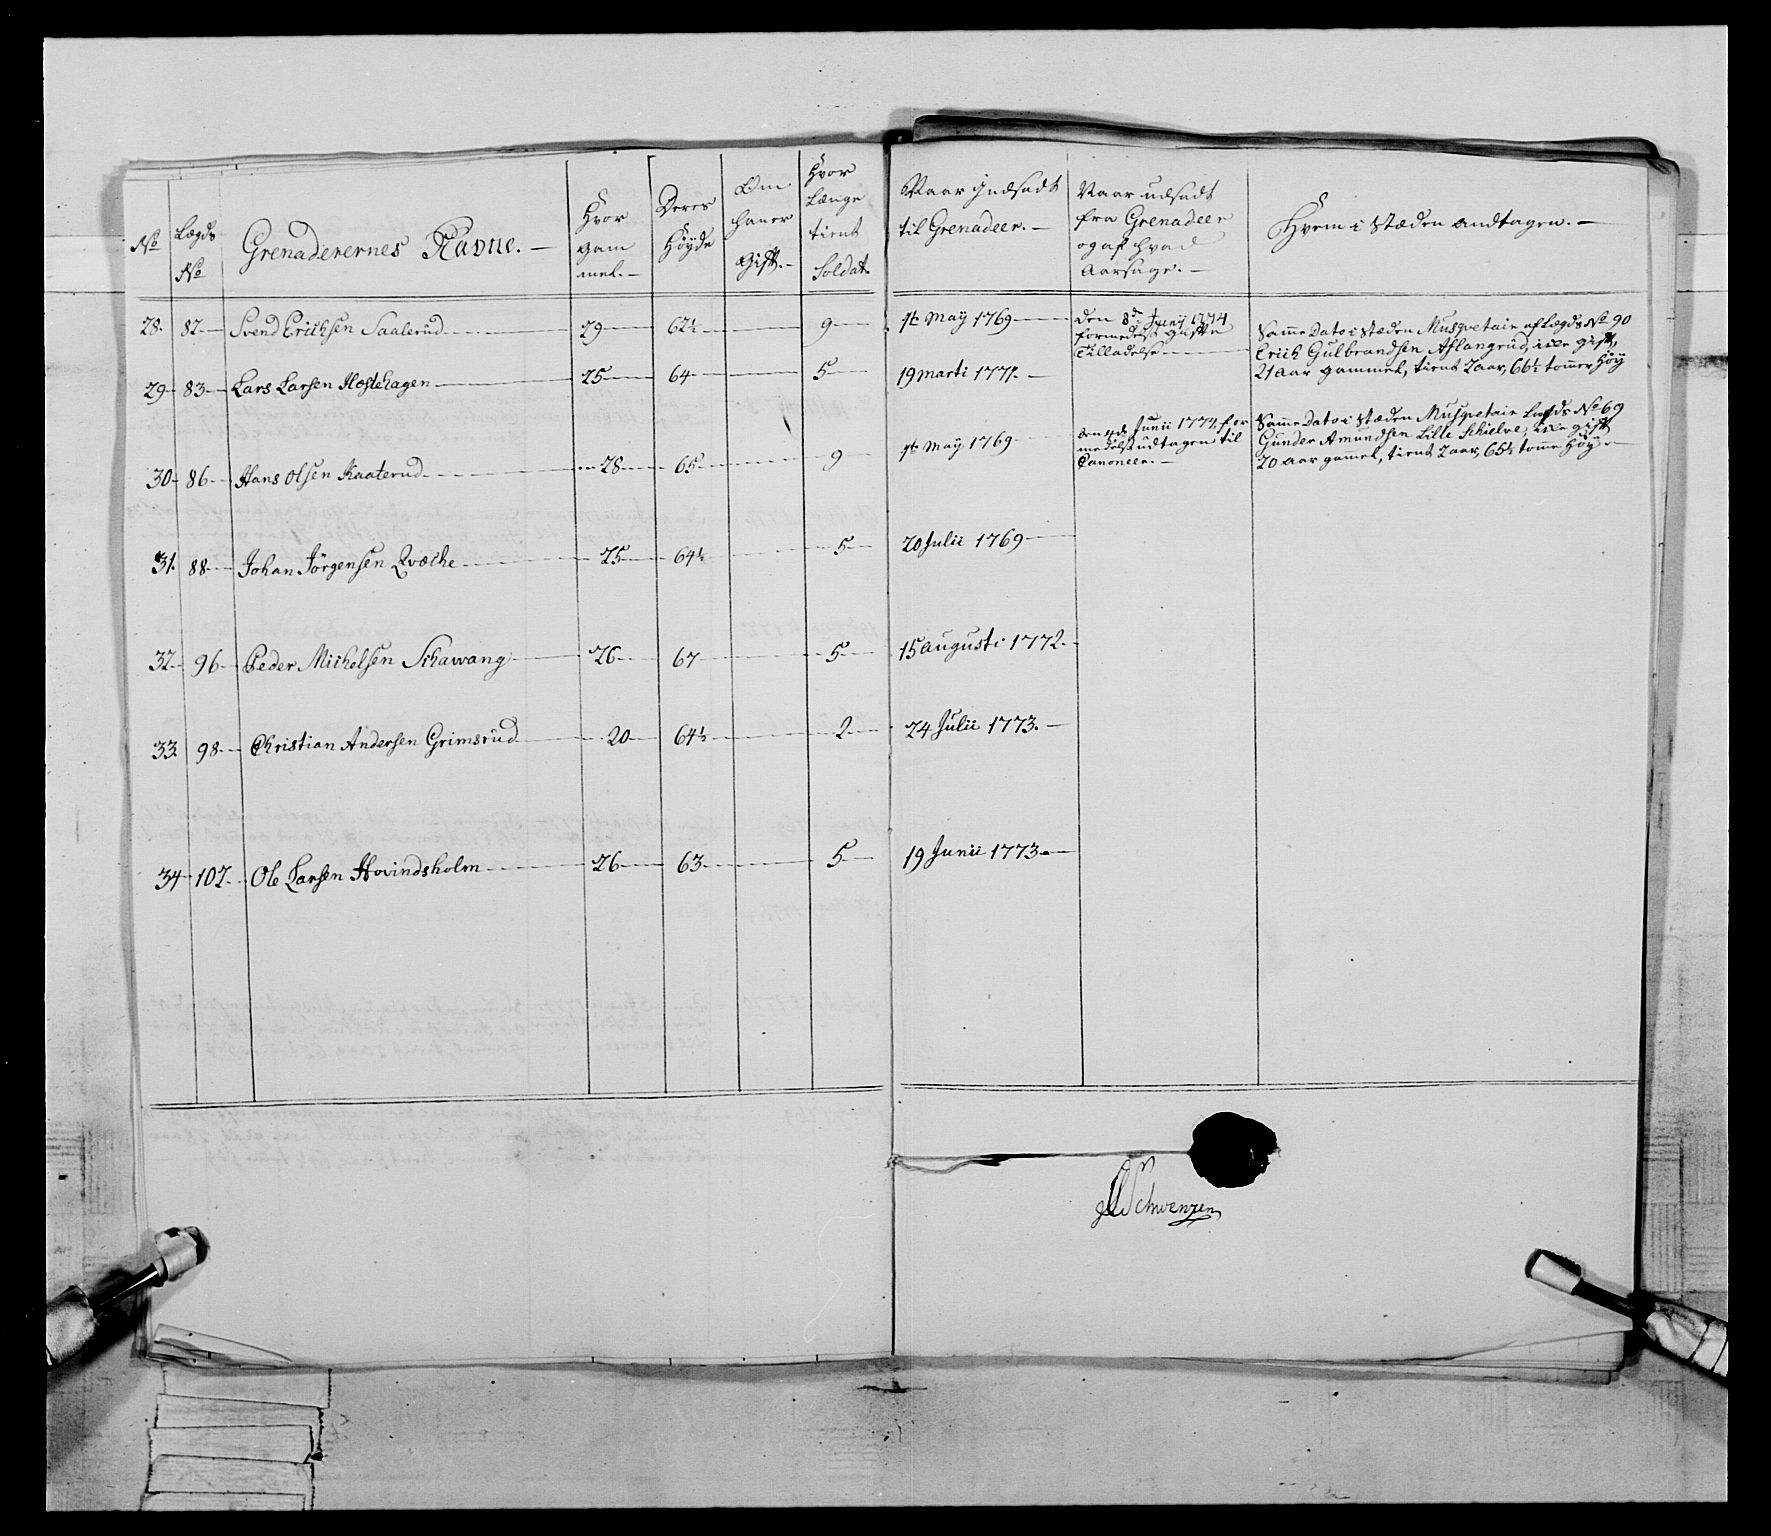 No
Lægds No
Grenaderernes Navne. —
Hvor gam mel. —
Deres Höyde
Om han er Gift. —
Hvor Længe tient Soldat.
Naar Indsadt til Grenadeer. —
Naar udsadt fra Grenadeer og af hvad Aarsage. —
Hvem i Stæden andtagen. —
28. 82. Svend Erichsen Saalerud 29 62½ 9 1te May 1769
den 8de Junij 1774
formedelst Gifte
Tilladelse
Samme Dato i Stæden Musqvetair af Lægds No 90
Erich Gulbrandsen Aslangrud, ikke gift,
21 Aar gammel, tient 2 aar, 66½ tommer höy
29 83 Lars Larsen Hostehagen 25 64 5 19 Marti 1771. —
30 86 Hans Olsen Kaaterud 28 65 9 1te May 1769
den 4de Junii 1774, for
medelst udtagen til
Canoneer. —
Samme Dato i Stæden Musqvetair Lægds No 69
Gunder Amundsen Lille Schielve, ikke gift
20 Aar gammel, tient 2 aar, 65½ tomme höy. —
31. 88 Johan Jörgensen Qvæche 25 64½ 5 20 Julii 1769
32 96 Peder Michelsen Schawang 26 67 5 15 Augusti 1772.
33. 98 Christian Andersen Grimsrud 20 64½ 2 24 Julii 1773. —
34 102. Ole Larsen Hovindsholm 26 63 5 19 Junii 1773. —
Schwenzen